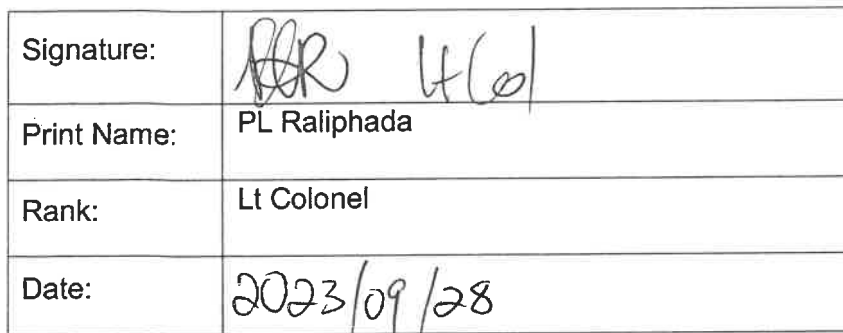 Signature: Lt Col
Print Name: PL Raliphada
Rank: Lt Colonel
Date: 2023/09/28